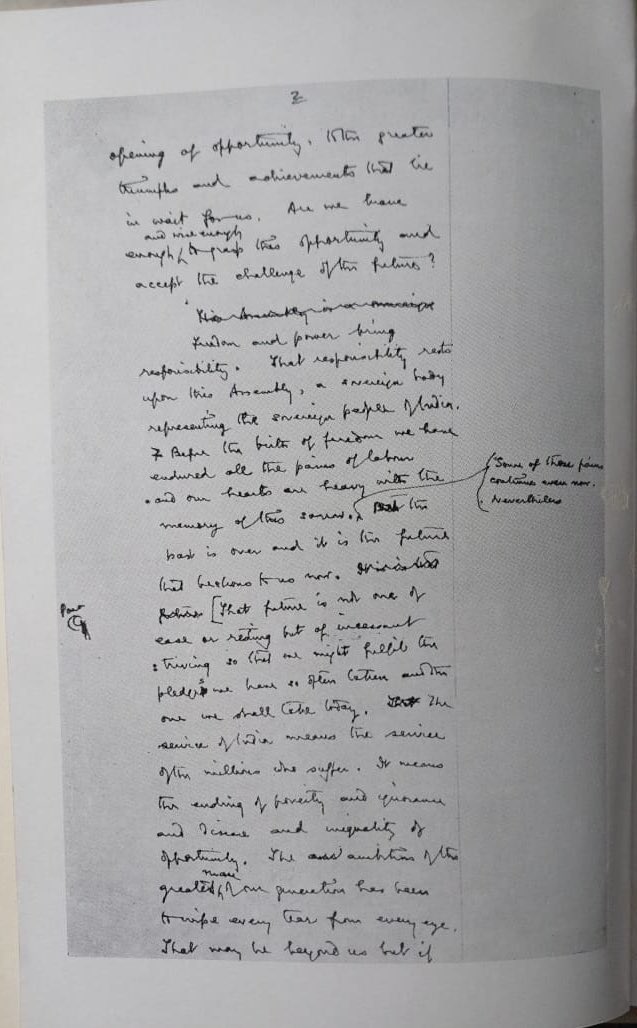 2
opening of opportunity, to the greater
triumphs and achievements that lie
in wait for us. Are we brave
and wise enough
enough to grasp this opportunity and
accept the challenge of the future?
This Assembly is a sovereign
Freedom and power bring
responsibility. That responsibility rests
upon this Assembly, a sovereign body
representing the sovereign people of India.
Before the birth of freedom we have
endured all the pains of labour
and our hearts are heavy with the
memory of this sorrow. But the
Some of those pains
continue even now.
Nevertheless
past is over and it is the future
that beckons to us now. It is
Para
future [That future is not one of
ease or resting but of incessant
striving so that we might fulfil the
pledges we have so often taken and the
one we shall take today. The
service of India means the service
of the millions who suffer. It means
the ending of poverty and ignorance
and disease and inequality of
opportunity. The ambition of the
man
greatest of our generation has been
to wipe every tear from every eye.
That may be beyond us but if